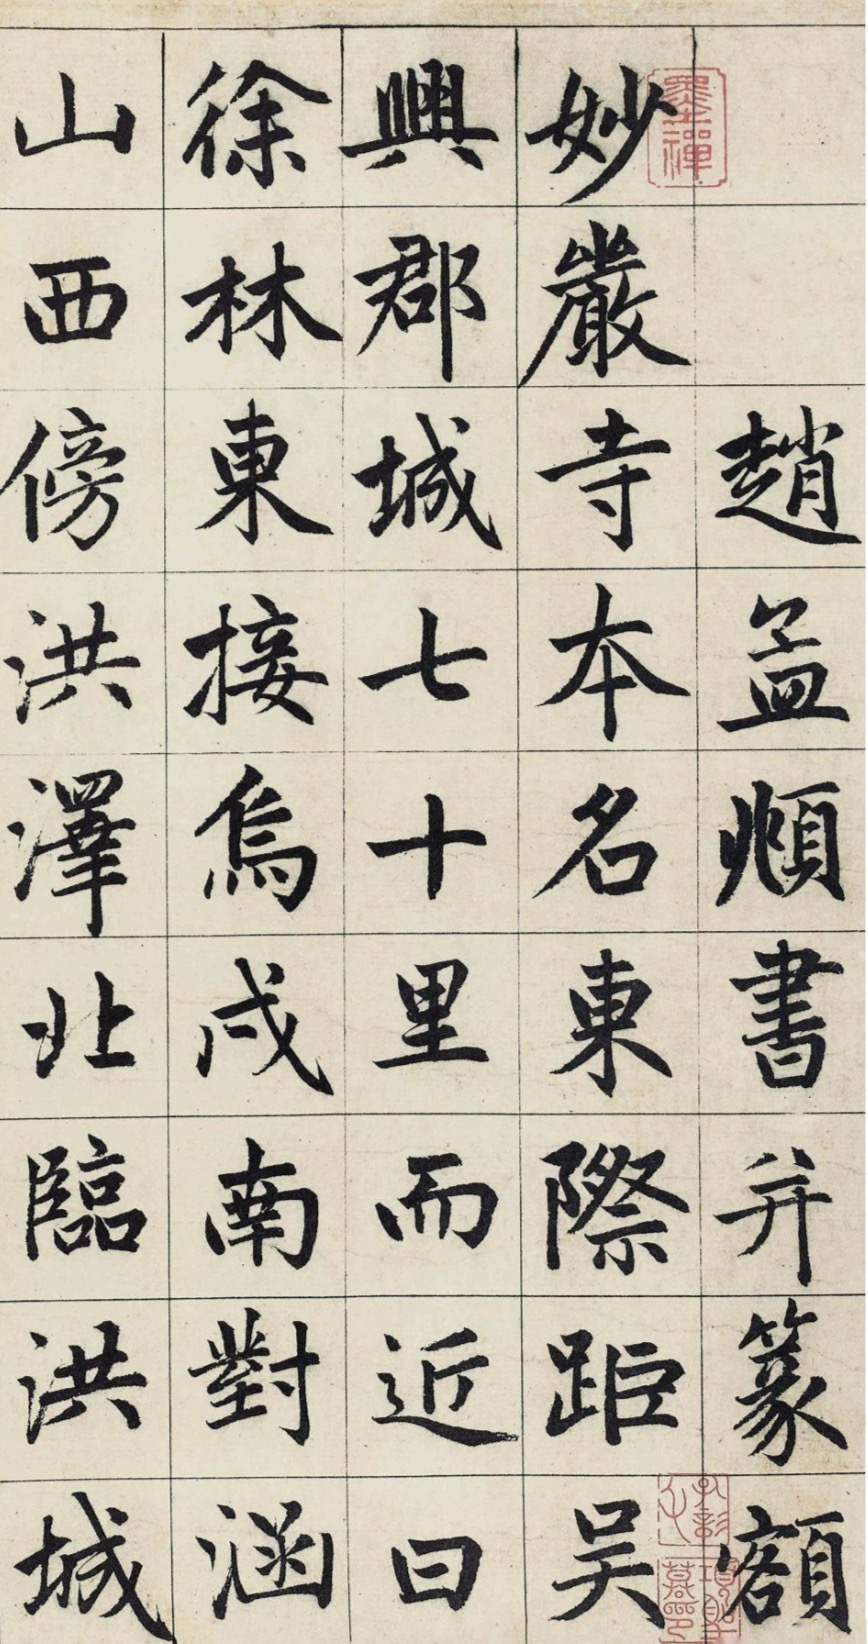 趙孟頫書并篆額
妙嚴寺本名東際距吴
興郡城七十里而近曰
徐林東接烏戍南對涵
山西傍洪澤北臨洪城
墨禪